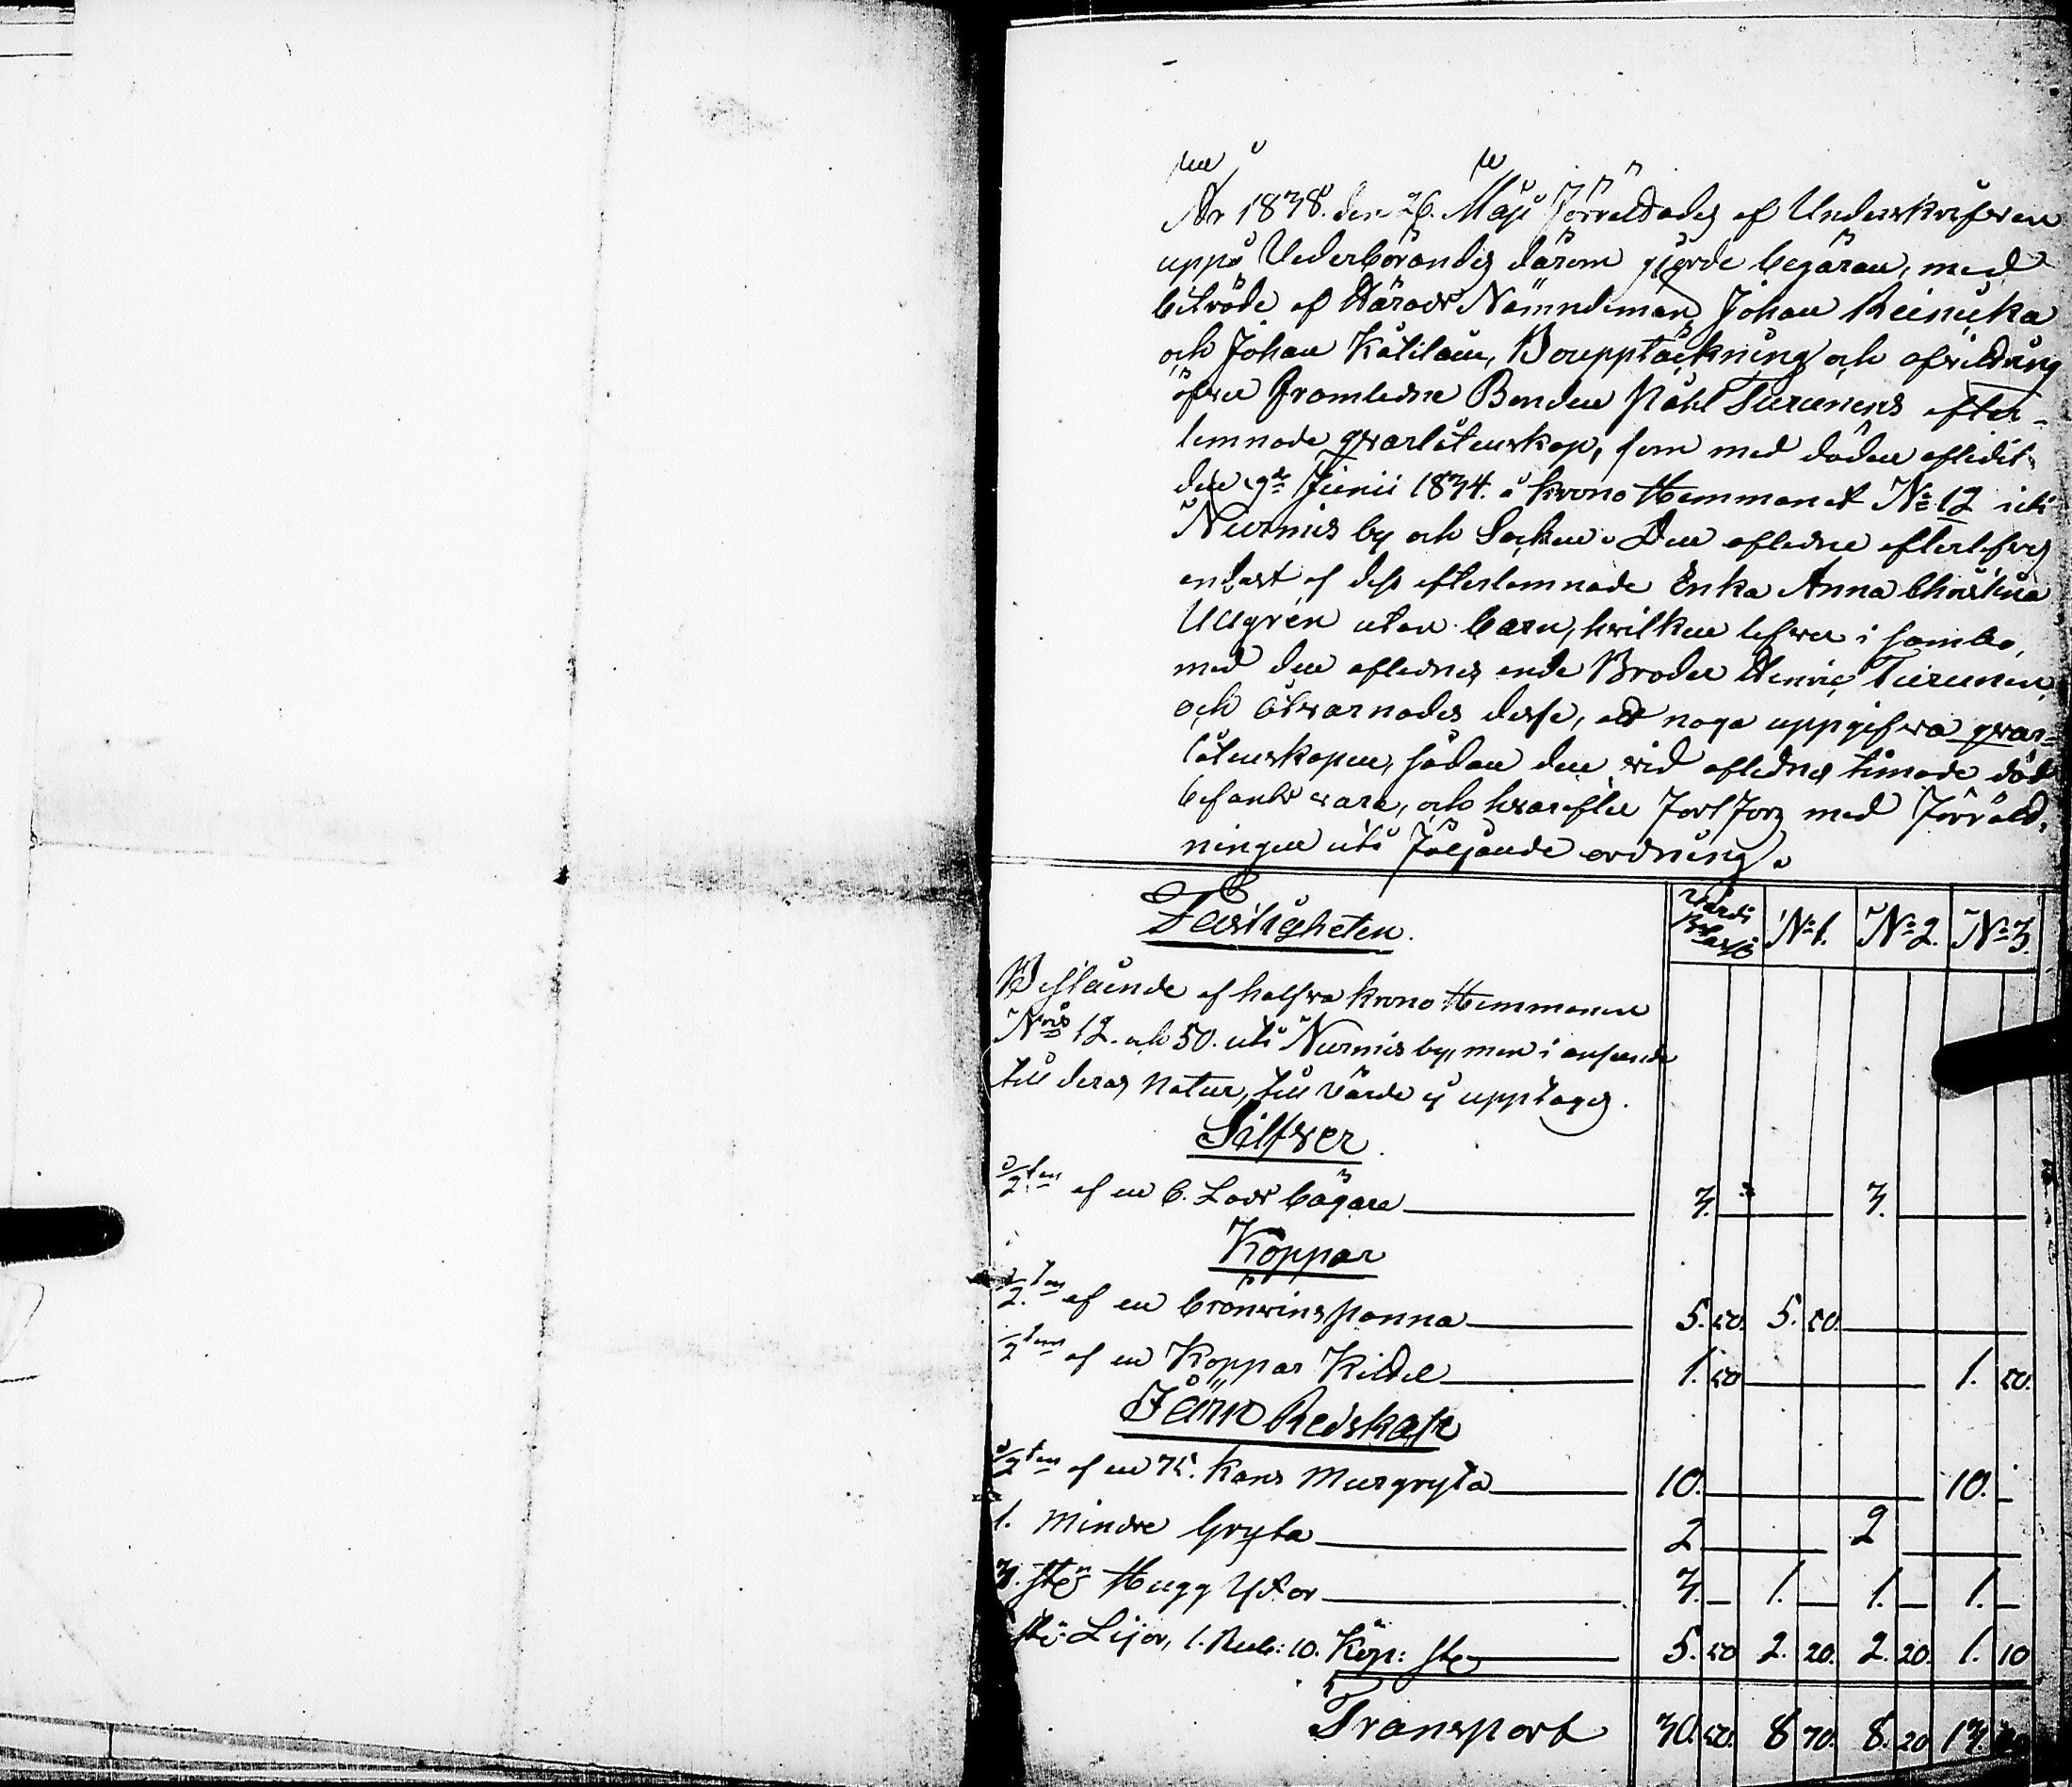 År 1838. den 26. Maji förrättades af Underskrifven
uppå Vederbörandes därom gjorde begäran, med
biträde af Härads Nämndemän Johan Reinicka
och Johan Kätiläin, Boupptäckning och afvittring
öfver framledne Bonden Påhl Turunens efter-
lemnade qvarlåtenskap, som med döden aflidit
den 9de Junii 1834. å krono Hemmanet No 12 uti
Nurmis by och Socken. Den aflidne efterlefves
endast af dess efterlemnade Enka Anna Christina
Ullgrén utan barn, hvilken lefver i sambo,
med den aflidnes enda Broder Henric Turunen,
och åtvarnades desse, att noga uppgifva qvar-
låtenskapen, sådan den vid aflidnes timade död
befants vara, och hvarefter fortfors med förrätt-
ningen uti följande ordning.
Fastigheten. Värde No 1. No 2. No 3.
Bestående af halfva krono Hemmanen
Nris 12. och 50. uti Nurmis by, men i anseende
till deras natur, till värde ej upptages.
Silfver
1/2ten af en 6. Lods bägare 3. 3.
Koppar
1/2ten af en bränvins panna 5. 50. 5. 50.
1/2ten af en Koppar Kittel 1. 50 1. 50.
Järn Redskap
1/2ten af en 75. Kans Murgryta 10. 10.
1. mindre Gryta 2 2
3. st. Hugg Yxor 3. 1. 1. 1.
st. Lijor, 1. Rub: 10. Kop: st. 5. 50 2. 20. 2. 20. 1. 10
Transport 30. 50. 8 70. 8. 20 13.